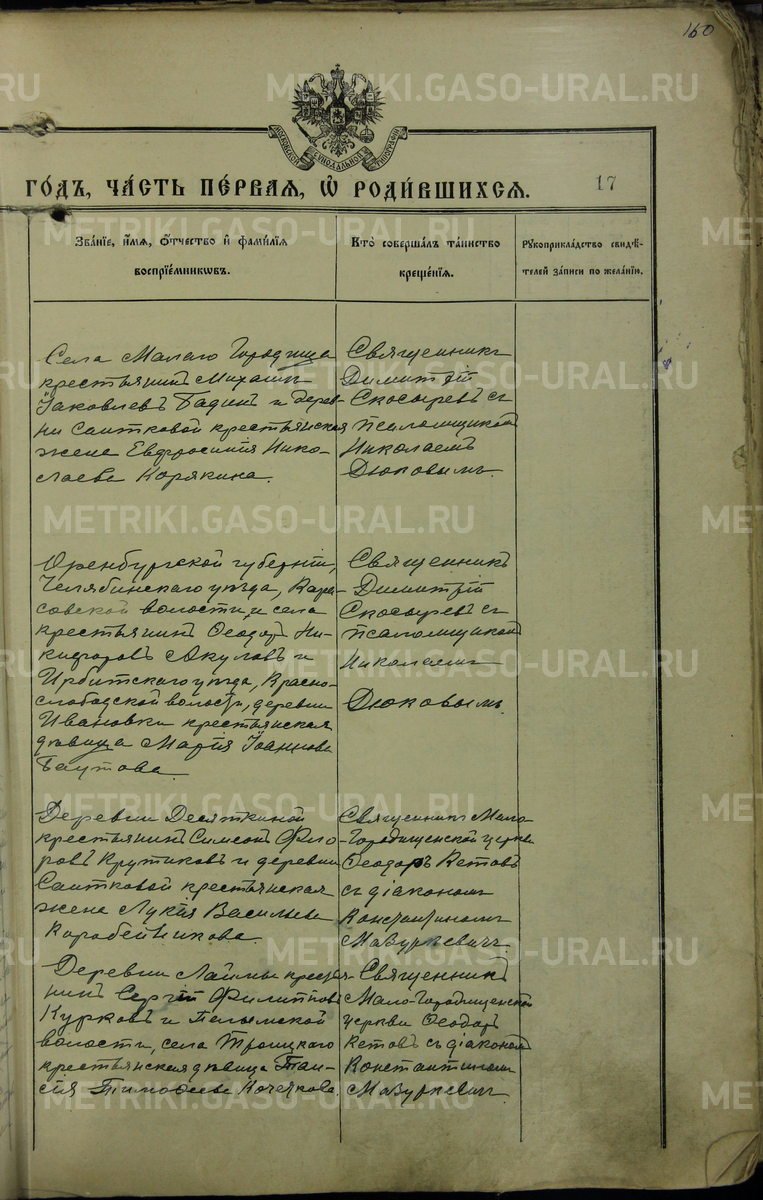 160
МОСКОВСКОЙ СѴНОДАЛЬНОЙ ТИПОГРАФІИ
ГО́ДЪ, ЧА́СТЬ ПЕ́РВАЯ, Ѡ҆ РОДИ́ВШИХСЯ.
17
Зва́нїе, и҆́мѧ, ѻ҆́тчество и҆ фами́лїѧ
воспрїе́мникѡвъ.
Кто̀ соверша́лъ та́инство
креще́нїѧ.
Рꙋкоприкла́дство свидѣ́-
телей за́писи по жела́нїю.
Села Малаго Городища
крестьянинъ Михаилъ
Іаковлевъ Бадинъ и дерев-
ни Саитковой крестьянская
жена Евфросинія Нико-
лаева Корякина.
Священникъ
Димитрій
Скосыревъ съ
псаломщикомъ
Николаемъ
Дюковымъ.
Оренбургской губерніи,
Челябинскаго уѣзда, Кара-
совской волости и села
крестьянинъ Ѳеодоръ Ни-
кифоровъ Акуловъ и
Ирбитскаго уѣзда, Красно-
слободской волости, деревни
Ивановки крестьянская
дѣвица Марія Іоаннова
Баутова.
Священникъ
Димитрій
Скосыревъ съ
псаломщикомъ
Николаемъ
Дюковымъ.
Деревни Десяткиной
крестьянинъ Симеонъ Фло-
ровъ Крутиковъ и деревни
Саитковой крестьянская
жена Лукія Васильева
Коробейникова.
Священникъ Мало-
Городищенской церкви
Ѳеодоръ Кетовъ
съ діакономъ
Константиномъ
Мазуркевичъ.
Деревни Лаймы крестья-
нинъ Сергій Филипповъ
Курковъ и Пелымской
волости, села Троицкаго
крестьянская дѣвица Таи-
сія Тимоѳеева Кочекова.
Священникъ
Мало-Городищенской
церкви Ѳеодоръ
Кетовъ съ діакономъ
Константиномъ
Мазуркевичъ.
METRIKI.GASO-URAL.RU